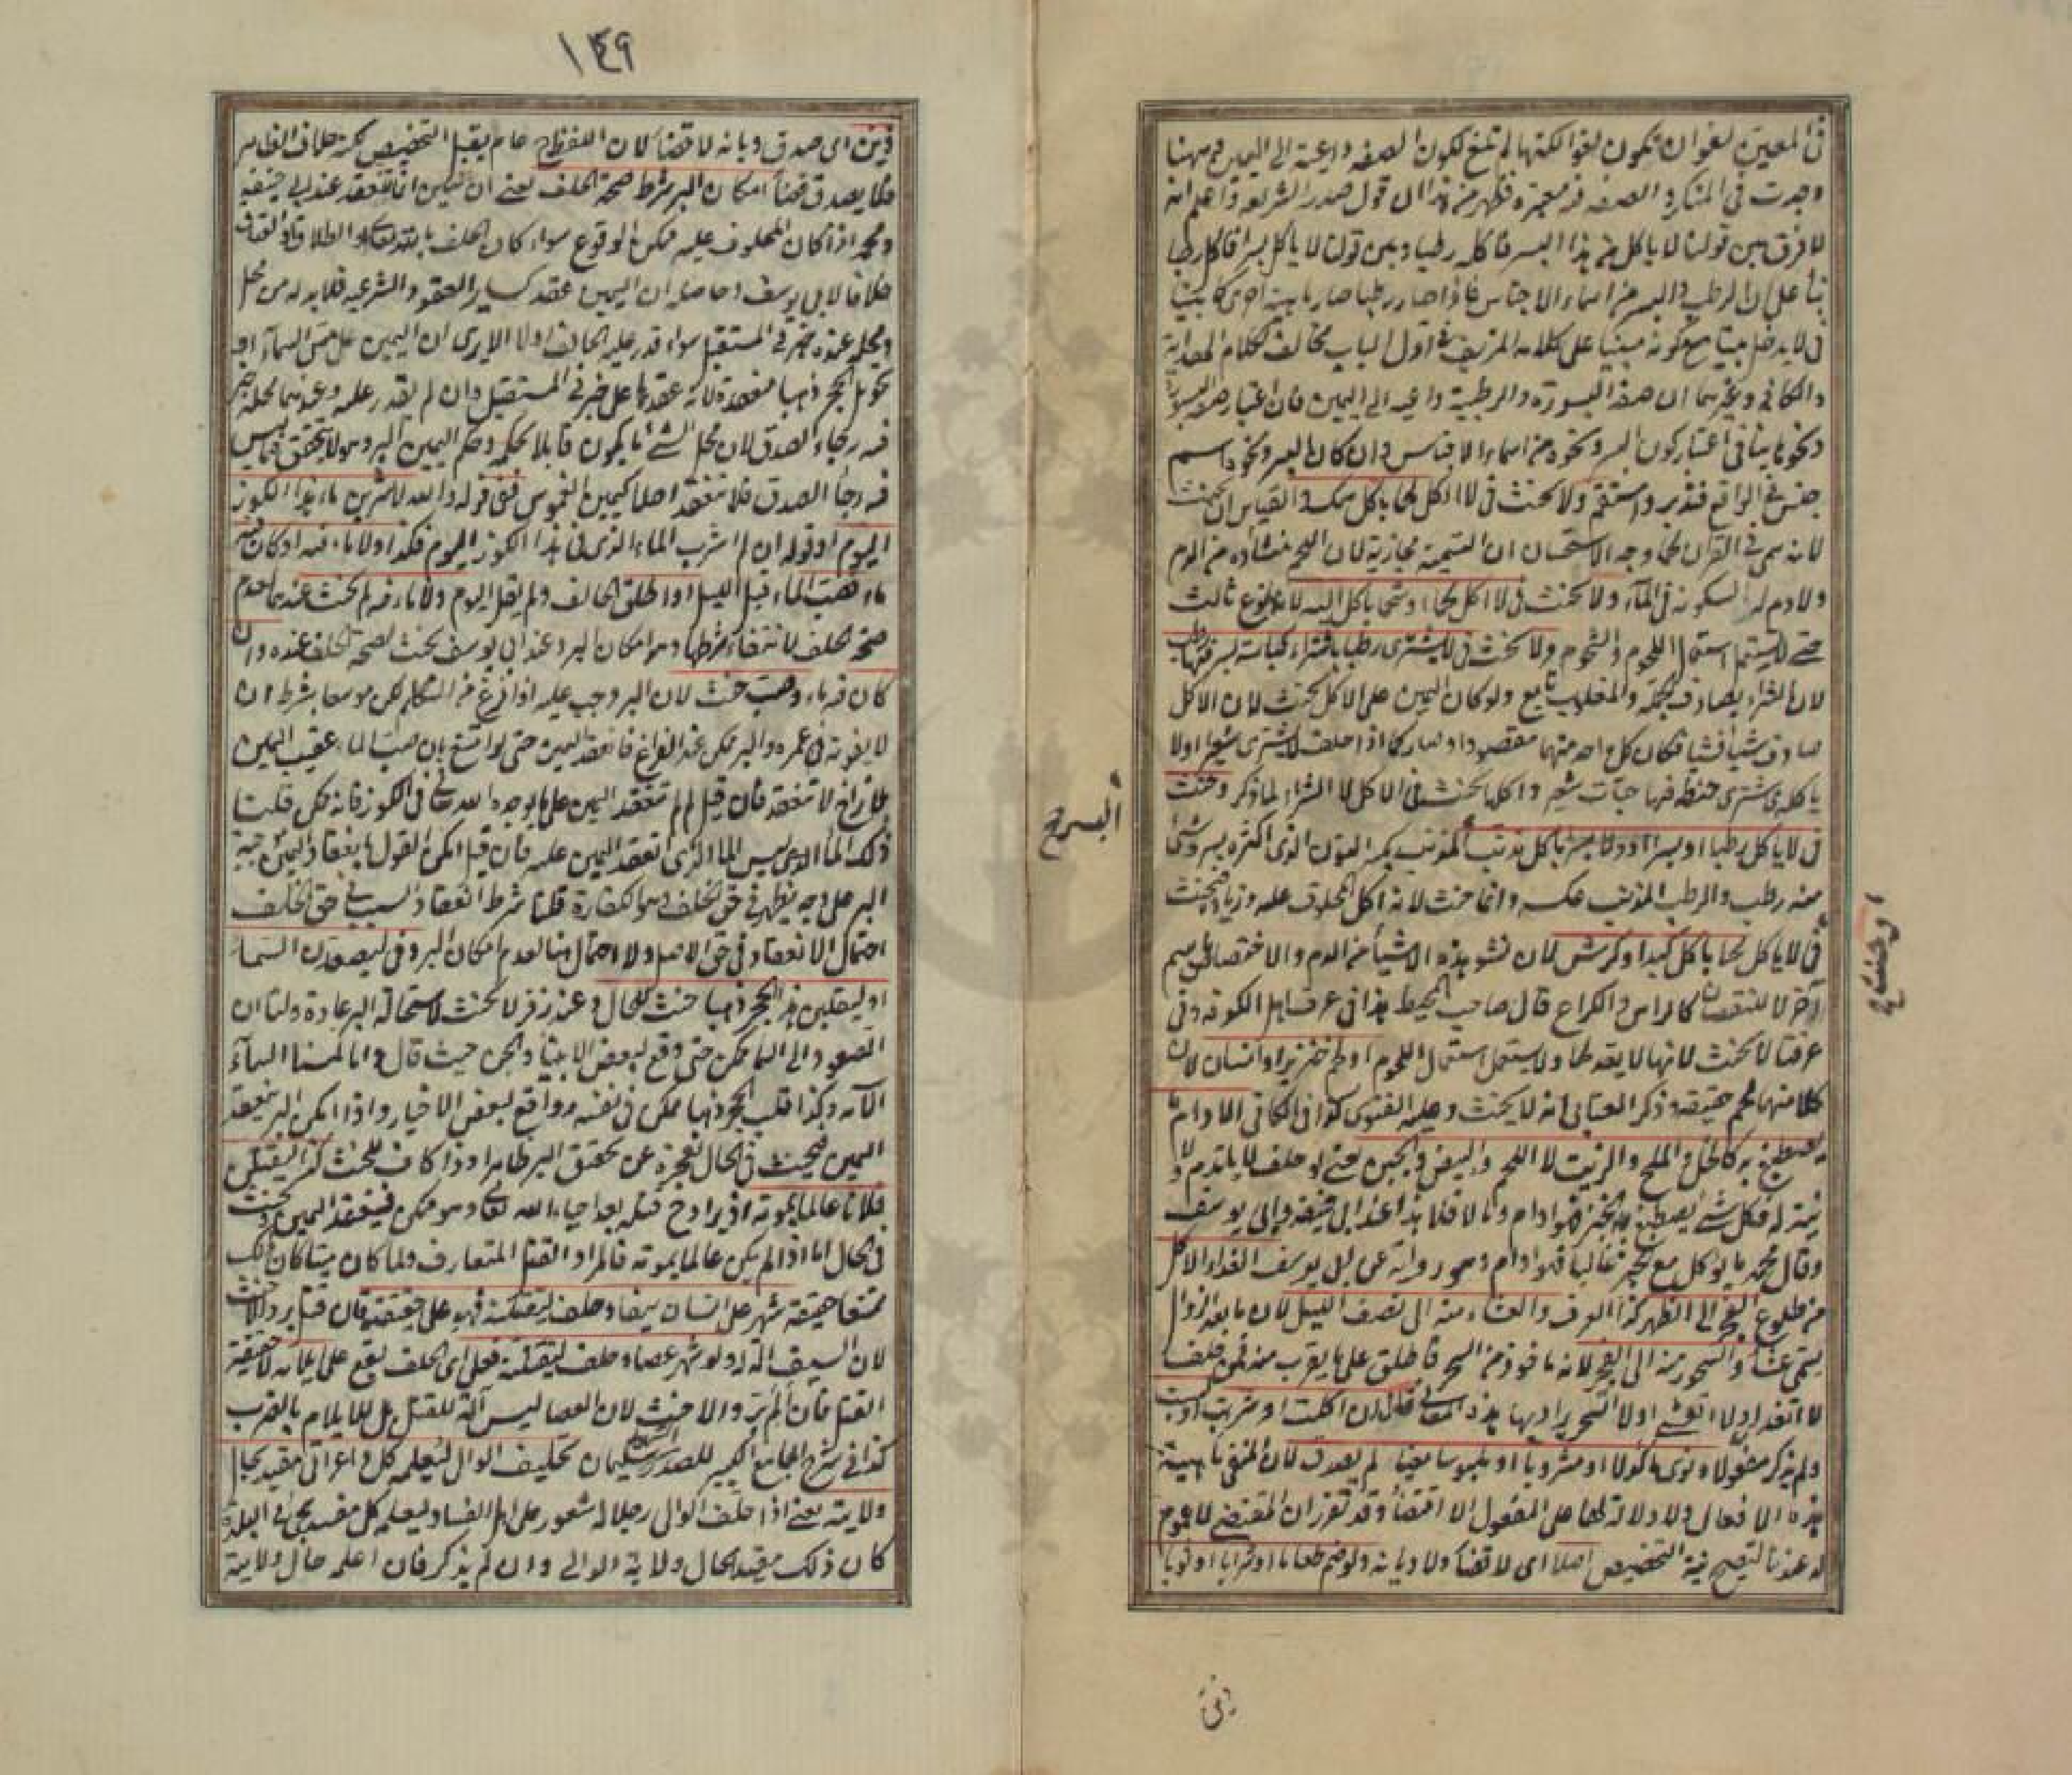 في المعين لغو ان تكون لغوا لكنها لم تلغ لكون الصفة داعية الى اليمين فههنا
وجدت في المنكر والصفة فيه معتبرة فظهر من هذا ان قول صدر الشريعة واعلم انه
لا فرق بين قولنا لا ياكل من هذا البسر فاكله رطبا وبين قولنا لا ياكل بسرا فاكل رطبا
بناء على ان الرطب والبسر من اسماء الاجناس فاذا صار رطبا صار ماهية اخرى كما بينا
في لا يدخل بيتا مع كونه مبنيا على كلامه المزيف في اول الباب مخالف لكلام الهداية
والكافي وغيرهما ان صفة البسورة والرطبية داعية الى اليمين فان اعتبار صفة البسورة
ونحوها ينافي اعتبار كون البسر ونحوه من اسماء الاجناس وان كان البسر ونحوه اسم
جنس في الواقع فتدبر واستقم ولا يحنث في لا اكل لحما باكل سمك والقياس ان يحنث
لانه سمي في القرآن لحما وجه الاستحسان ان التسمية مجازية لان اللحم منشأه من الدم
ولا دم له لسكونه في الماء ولا يحنث في لا اكل لحما او شحما باكل الية لانها نوع ثالث
حتى لا يستعمل استعمال اللحوم والشحوم ولا يحنث في لا يشتري رطبا باشتراء كباسة بسر فيها رطب
لان الشراء يصادف الجملة والمغلوب تابع ولو كان اليمين على الاكل يحنث لان الاكل
صادف شيئا فشيئا فكان كل واحد منهما مقصودا وصار كما اذا حلف لا يشتري شعيرا ولا
ياكله فاشترى حنطة فيها حبات شعير واكلها يحنث في الاكل لا الشراء لما ذكر وحنث
في لا ياكل رطبا او بسرا او ولا بسرا باكل مذنب المذنب بكسر النون الذي اكثره بسر وشيء
منه رطب والرطب المذنب عكسه وانما حنث لانه اكل المحلوف عليه وزيادة فيحنث
في لا ياكل لحما باكل كبد او كرش لان نشو هذه الاشياء من الدم والاختصاص باسم
آخر لا للنقصان كالراس والكراع قال صاحب المحيط هذا في عرف اهل الكوفة وفي
عرفنا لا يحنث لانها لا يعد لحما ولا يستعمل استعمال اللحوم او لحم خنزير او انسان لان
كلا منهما لحم حقيقة وذكر العتابي انه لا يحنث وعليه الفتوى كذا في الكافي الادام ما
يصطبغ به كالخل والملح والزيت لا اللحم والبيض والجبن يعني لو حلف لا ياتدم ولا
نية له فكل شيء يصطبغ به الخبز فهو ادام وما لا فلا هذا عند ابي حنيفة وابي يوسف
وقال محمد ما يؤكل مع الخبز غالبا فهو ادام وهو رواية عن ابي يوسف الغداء الاكل
من طلوع الفجر الى الظهر كذا العرف والعشاء منه الى نصف الليل لان ما بعد الزوال
يسمى عشاء والسحور منه الى الفجر لانه ماخوذ من السحر فاطلق على ما يقرب منه فمن حلف
لا اتغدى ولا اتعشى او لا اتسحر يراد بها هذه المعاني قال ان اكلت او شربت او لبست
ولم يذكر مفعولا ونوى ماكولا او مشروبا او ملبوسا معينا لم يصدق لان المنفي ماهية
هذه الافعال ولا دلالة لها على المفعول الا اقتضاء وقد تقرر ان المقتضى لا عموم
له عندنا لتصح نية التخصيص اصلا اى لا قضاء ولا ديانة ولو ضم طعاما او شرابا او ثوبا
البسر صح
او حنث صح
دين
١٤٩
دين اى صدق ديانة لا قضاء لان اللفظ ح عام يقبل التخصيص لكنه خلاف الظاهر
فلا يصدق قضاء امكان البر شرط صحة الحلف يعني ان اليمين انما تنعقد عند ابي حنيفة
ومحمد اذا كان المحلوف عليه ممكن الوقوع سواء كان الحلف بالله تعالى او الطلاق او العتاق
خلافا لابي يوسف وحاصله ان اليمين عقد كسائر العقود الشرعية فلا بد له من محل
ومحله عنده خبر في المستقبل سواء قدر عليه الحالف اولا الا يرى ان اليمين على مس السماء او
تحويل الحجر ذهبا منعقدة لانه عقدها على خبر في المستقبل وان لم يقدر عليه وعندهما محله خبر
فيه رجاء الصدق لان محل الشيء ما يكون قابلا لحكمه وحكم اليمين البر وهو لا يتحقق فيما ليس
فيه رجاء الصدق فلا تنعقد اصلا كيمين الغموس ففي قوله والله لاشربن ماء هذا الكوز
اليوم او قوله ان لم اشرب الماء الذي في هذا الكوز اليوم فكذا ولا ماء فيه او كان فيه
ماء فصب الماء قبل الليل او اطلق الحالف ولم يقل اليوم ولا ماء فيه لم يحنث عندهما لعدم
صحة الحلف لانتفاء شرطها وهو امكان البر وعند ابي يوسف يحنث لصحة الحلف عنده وان
كان فيه ماء وصب حنث لان البر وجب عليه اذا فرغ من التكلم لكن موسعا بشرط ان
لا يفوته في عمره والبر ممكن عند الفراغ فانعقد اليمين حتى لو امتنع بان صب الماء عقيب اليمين
بلا تراخ لا تنعقد فان قيل لم لم تنعقد اليمين على ما يوجده الله تعالى في الكوز فانه ممكن قلنا
ذلك الماء الذي ليس الماء الذي انعقد اليمين عليه فان قيل امكن القول بانعقاد اليمين موجبة
البر على وجه يظهر في حق الخلف وهو الكفارة قلنا شرط انعقاد السبب في حق الخلف
احتمال الانعقاد في حق الاصل ولا احتمال هنا لعدم امكان البر وفي ليصعدن السماء
او ليقلبن هذا الحجر ذهبا حنث للحال وعند زفر لا يحنث لاستحالة البر عادة ولنا ان
الصعود الى السماء ممكن حتى وقع لبعض الانبياء والجن حيث قال وانا لمسنا السماء
الآية وكذا قلب الحجر ذهبا ممكن في نفسه وواقع لبعض الاخيار واذا امكن البر تنعقد
اليمين فيحنث في الحال لعجزه عن تحقيق البر ظاهرا وذا كاف للحنث كذا ليقتلن
فلانا عالما بموته اذ يراد ح قتله بعد احياء الله تعالى وهو ممكن فينعقد اليمين ويحنث
في الحال اما اذا لم يكن عالما بموته فالمراد القتل المتعارف ولما كان ميتا كان ذلك
ممتنعا حقيقة شهر على انسان سيفا وحلف ليقتلنه فهو على حقيقته فان قتل بر والا حنث
لان السيف آلة له ولو شهر عصا وحلف ليقتلنه فعلى اى الحلف يقع على ايلامه لا حقيقة
القتل فان الم بر والا حنث لان العصا ليس آلة للقتل بل للايلام بالضرب
كذا في شرح الجامع الكبير للصدر سليمان تحليف الوالي ليعلمه كل داعر اتى مقيد بحال
ولايته يعني اذا حلف الوالي رجلا له شعور على اهل الفساد ليعلمه كل مفسد يجئ في البلدة
كان ذلك مقيدا بحال ولاية الوالي وان لم يذكر فان اعلمه حال ولايته